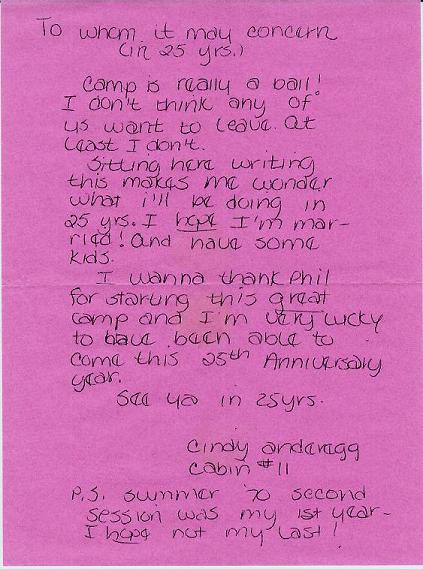 To whom it may concern
(in 25 yrs.)
Camp is really a ball!
I don't think any of
us want to leave. At
least I don't.
Sitting here writing
this makes me wonder
what i'll be doing in
25 yrs. I hope I'm mar-
ried! And have some
kids.
I wanna thank Phil
for starting this great
camp and I'm very lucky
to have been able to
come this 25th Anniversary
year.
See ya in 25 yrs.
Cindy Anderegg
Cabin #11
P.S. Summer '70 second
session was my 1st year-
I hope not my last!